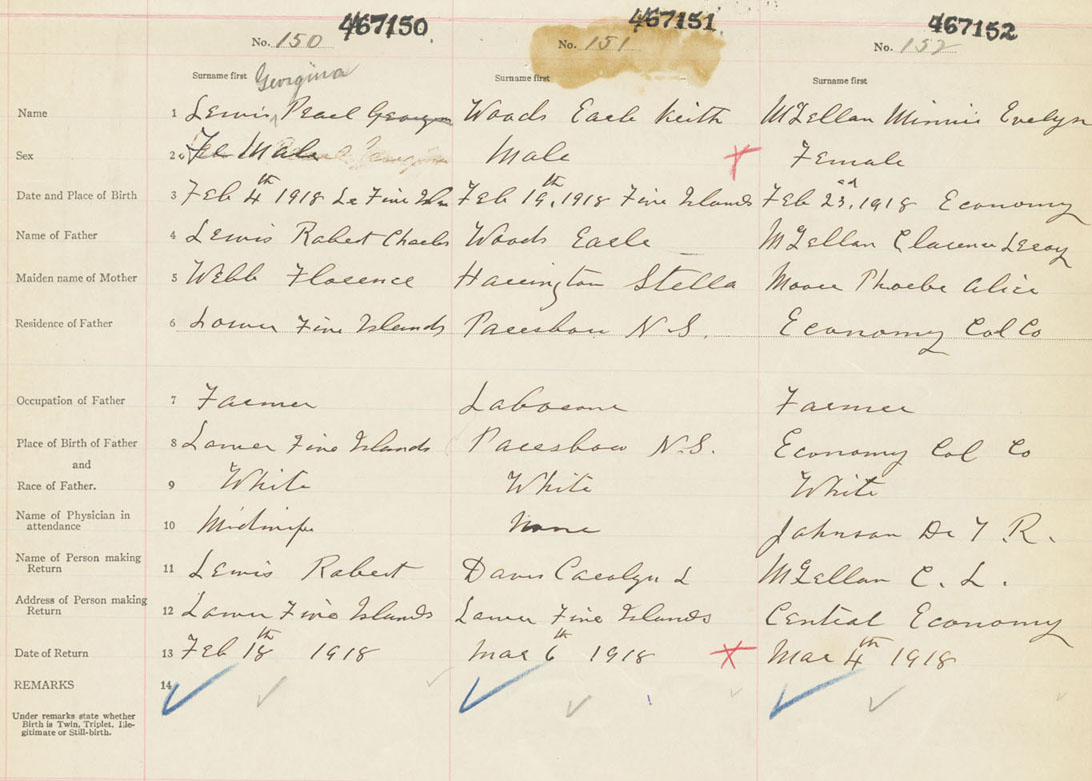 467150 467151 467152
No. 150 No. 151 No. 152
Surname first Georgina Surname first Surname first
Name 1 Lewis Pearl Georgin Woods Earle Keith McLellan Minnie Evelyn
Sex 2 Fe Male Male Female
Date and Place of Birth 3 Feb 4th 1918 Lr Five Isln Feb 19th, 1918 Five Islands Feb 23rd, 1918 Economy
Name of Father 4 Lewis Robert Charles Woods Earle McLellan Clarence Leroy
Maiden name of Mother 5 Webb Florence Harrington Stella Moore Phoebe Alice
Residence of Father 6 Lower Five Islands Parrsboro N.S. Economy Col Co
Occupation of Father 7 Farmer Labourer Farmer
Place of Birth of Father 8 Lower Five Islands Parrsboro N.S. Economy Col Co
and
Race of Father. 9 White White White
Name of Physician in
attendance 10 Midwife None Johnson Dr T. R.
Name of Person making
Return 11 Lewis Robert Davis Carolyn L McLellan C. L.
Address of Person making
Return 12 Lower Five Islands Lower Five Islands Central Economy
Date of Return 13 Feb 18th 1918 Mar 6th 1918 Mar 4th 1918
REMARKS 14
Under remarks state whether
Birth is Twin, Triplet, Ille-
gitimate or Still-birth.